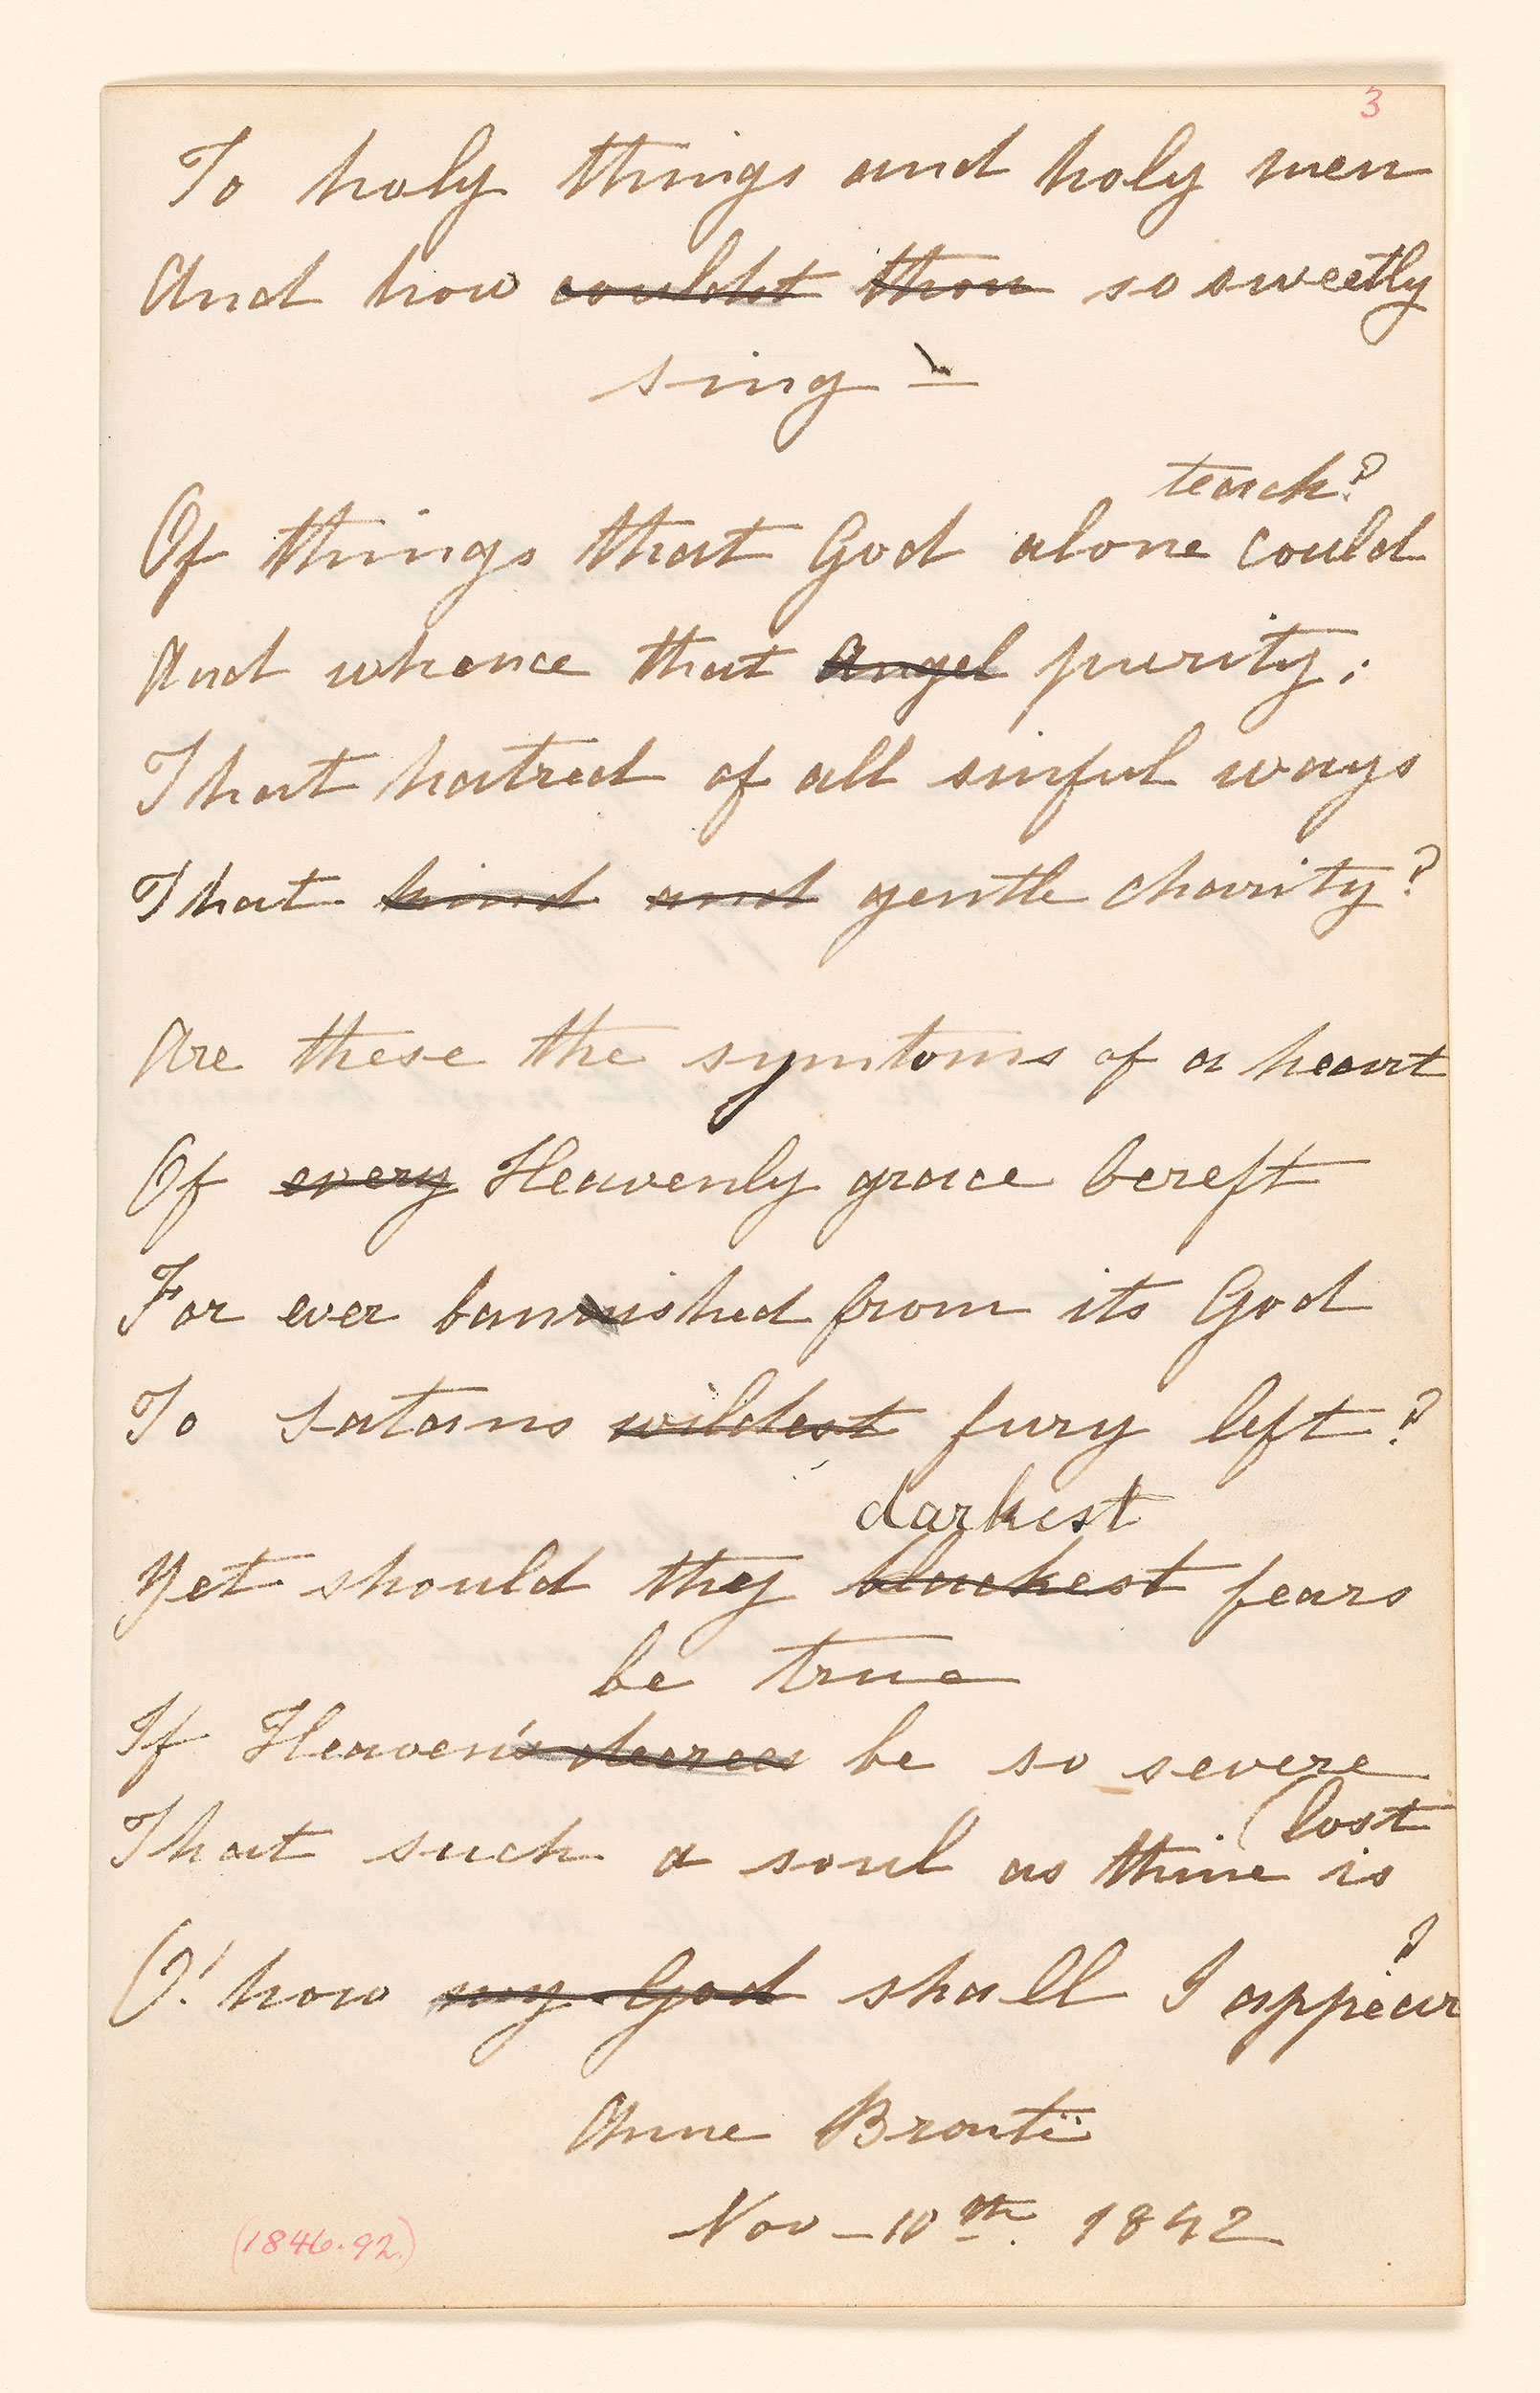 3
To holy things and holy men
And how couldst thou so sweetly
sing –
teach?
Of things that God alone could
And whence that angel purity;
That hatred of all sinful ways
That kind and gentle charity?
Are these the symtoms of a heart
Of every Heavenly grace bereft
For ever bannished from its God
To Satans wildest fury left?
darkest
Yet should thy blackest fears
be true
If Heaven's decrees be so severe
(lost
That such a soul as thine is
?
O! how my God shall I appear
Anne Brontë
Nov – 10th. 1842
(1846.92.)